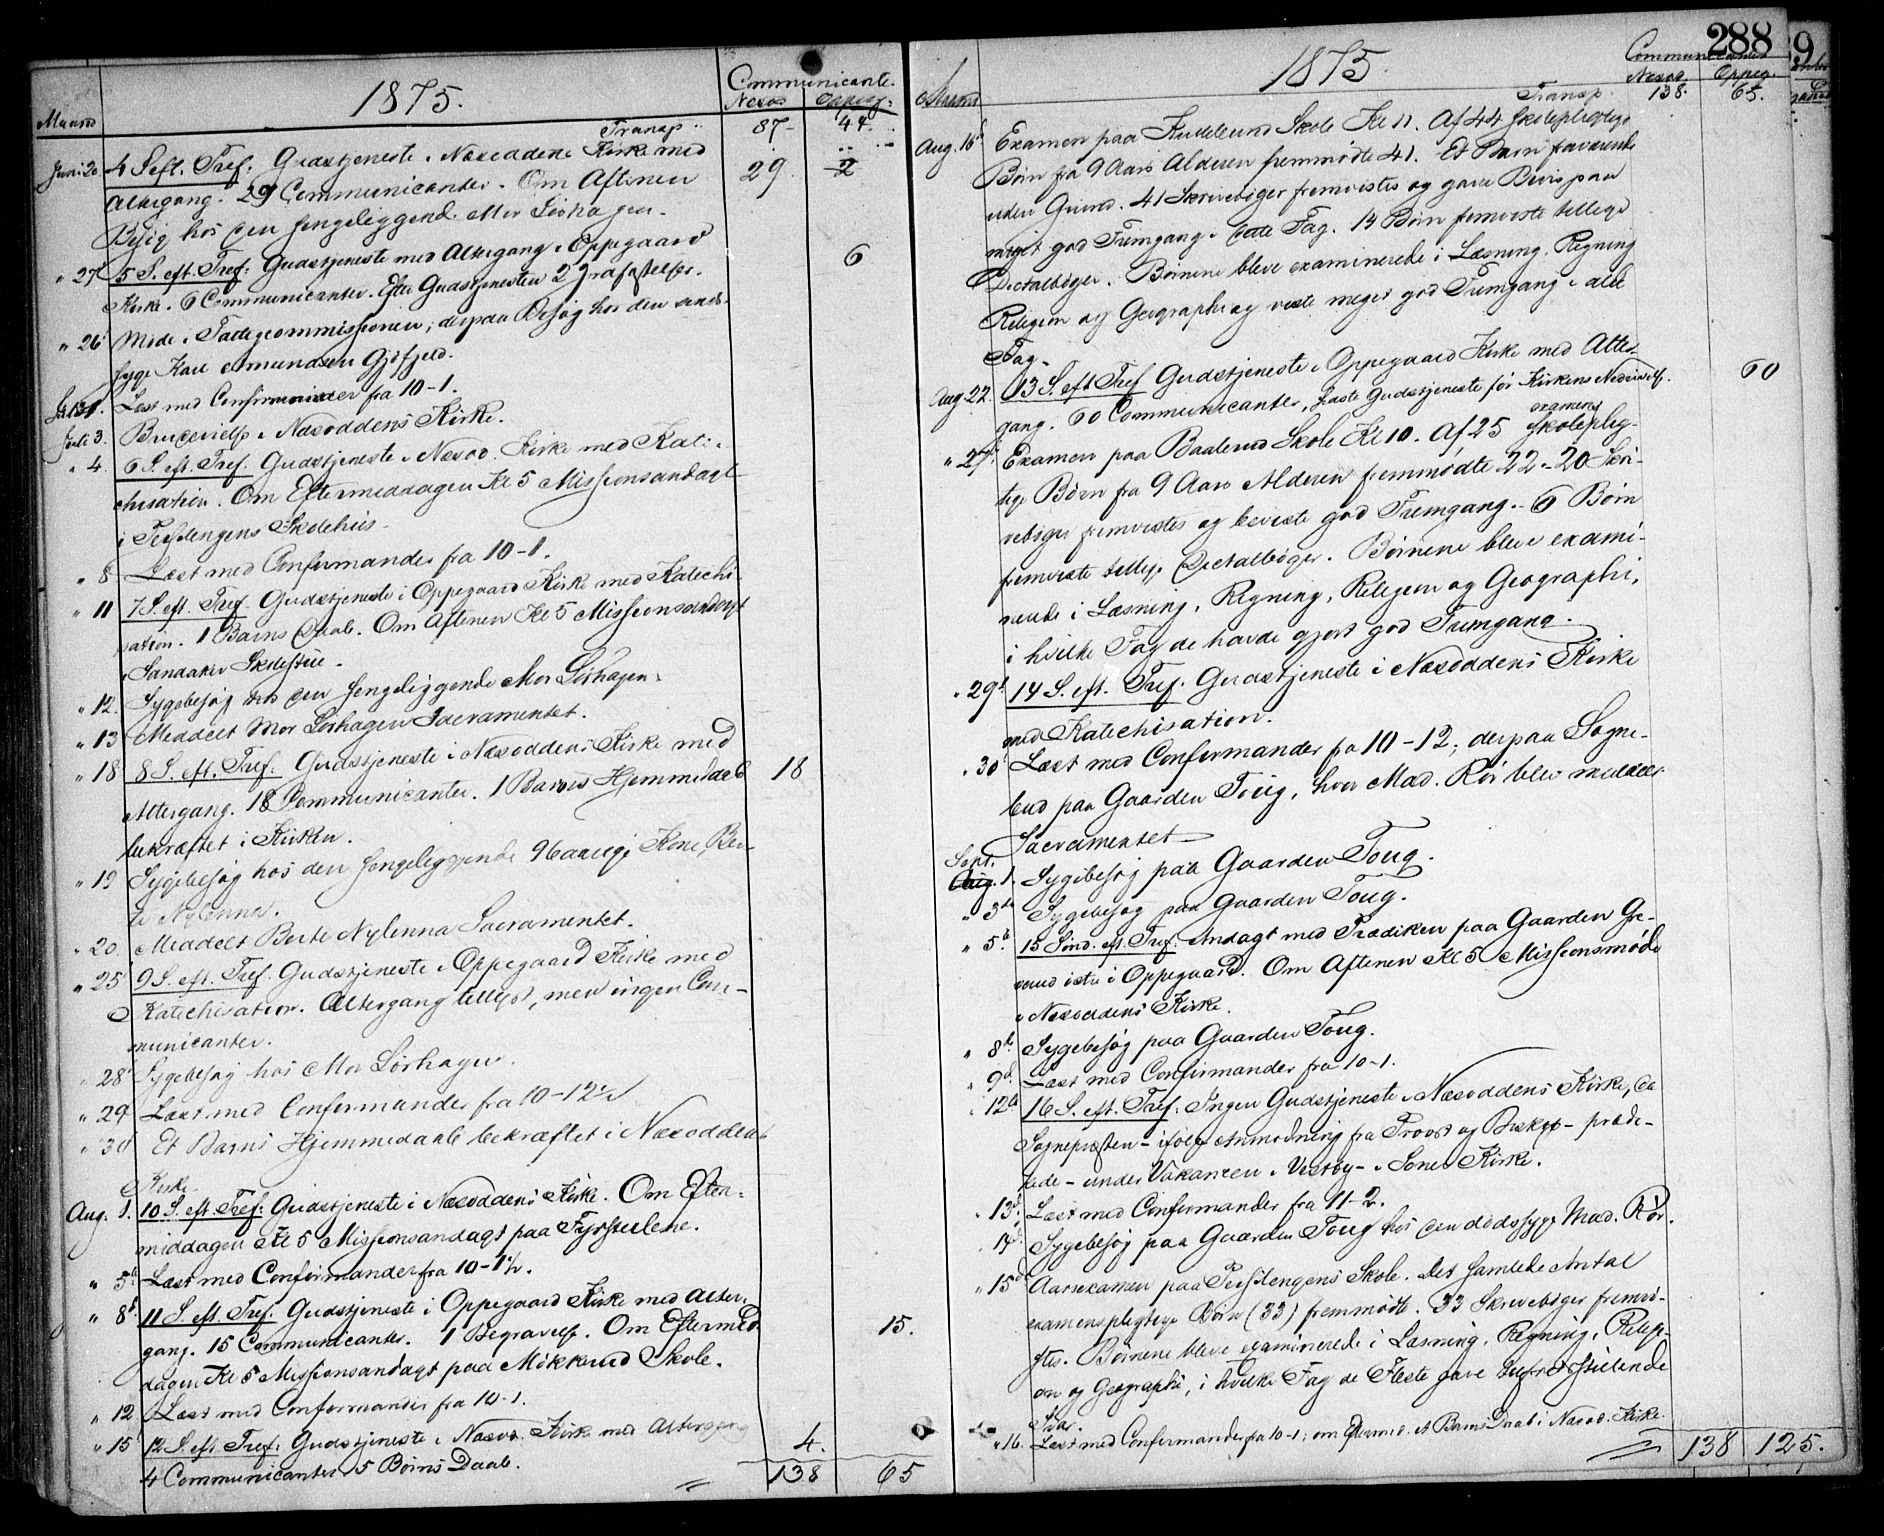 1875.
Communicante.
Maaned
Næsod
Oppeg.
Transp. 87 - 44.
Juni 20 4 S. eft. Tref: Gudstjeneste i Næsoddens Kirke med 29. 2
Altergang. 29 Communicanter. Om Aftenen
Besøg hos den sengeliggende Mor Sørhagen.
" 27 5 S. eft. Tref: Gudstjeneste med Altergang i Oppegaard 6
Kirke. 6 Communicanter. Efter Gudstjenesten 2 Jordfæstelser.
" 26 Møde i Fattigcommissionen; derpaa Besøg hos den
syge Kari Amundsen Gjøfjeld.
Læst med Confirmander fra 10-1.
Juli 3. Brudevielse i Næsoddens Kirke.
" 4. 6 S. eft. Tref. Gudstjeneste i Næsod. Kirke med Kate-
chisation. Om Eftermiddagen Kl 5 Missionsandagt
i Prestengens Skolehus.
" 8 Læst med Confirmander fra 10-1.
" 11 7 S. eft. Tref. Gudstjeneste i Oppegaard Kirke med Katechi-
sation. 1 Barns Daab. Om Aftenen Kl 5 Missionsandagt
i Sandaker Skolestue.
" 12. Sygebesøg hos den sengeliggende Mor Sørhagen.
" 13 Meddelt Mor Sørhagen Sacramentet.
" 18 8 S. eft. Tref: Gudstjeneste i Næsoddens Kirke med 18
Altergang. 18 Communicanter. 1 Barns Hjemmedaab
bekræftet i Kirken.
" 19 Sygebesøg hos den sengeliggende 96aarige Kone Ber-
te Nylenna.
" 20. Meddelt Berte Nylenna Sacramentet.
" 25 9 S. eft. Tref. Gudstjeneste i Oppegaard Kirke med
Katechisation. Altergang tillyst, men ingen Com-
municanter.
" 28 Sygebesøg hos Mor Sørhagen.
" 29 Læst med Confirmander fra 10-12½
" 30 Et Barns Hjemmedaab bekræftet i Næsoddens
Kirke.
Aug. 1. 10 S. eft. Tref: Gudstjeneste i Næsoddens Kirke. Om Efter-
middagen Kl 5 Missionsandagt paa Fjeldstrand.
" 5 Læst med Confirmander fra 10-1½.
" 8 11 S. eft. Tref. Gudstjeneste i Oppegaard Kirke med Alter-
gang. 15 Communicanter. 1 Begravelse. Om Eftermid- 15.
dagen Kl 5 Missionsandagt paa Mokkerud Skole.
" 12 Læst med Confirmander fra 10-1.
" 15 12 S. eft. Tref: Gudstjeneste i Næsod. Kirke med Altergang 4.
4 Communicanter. 5 Børns Daab.
138 65
288
1875.
Communicanter
Maaned
Næsod. Oppeg.
Transp. 138. 65.
Aug. 16 Examen paa Skole Kl 11. Af 44 skolepligtige
Børn fra 9 Aars Alderen fremmødte 41. Et Barn fraværende
uden Grund. 41 Skrivebøger fremvistes og gave Bevis paa
meget god Fremgang i dette Fag. 14 Børn fremviste tillige
Dictatbøger. Børnene bleve examinerede i Læsning, Regning
Religion og Geographi og viste meget god Fremgang i alle
Fag.
Aug. 22. 13 S. eft Tref. Gudstjeneste i Oppegaard Kirke med Alter- 60
gang. 60 Communicanter, sidste Gudstjeneste før Kirkens
" 27 Examen paa Skole Kl 10. Af 25 examens skoleplig-
tige Børn fra 9 Aars Alderen fremmødte 22. 20 Skri-
vebøger fremvistes og beviste god Fremgang. 6 Børn
fremviste tillige Dictatbøger. Børnene bleve exami-
nerede i Læsning, Regning, Religion og Geographi,
i hvilke Fag de havde gjort god Fremgang.
" 29 14 S. eft. Tref. Gudstjeneste i Næsoddens Kirke
med Katechisation.
" 30 Læst med Confirmander fra 10-12; derpaa Sogne-
bud paa Gaarden Toug, hvor Mad. Rør blev meddelt
Sacramentet
Sept.
Aug. 1. Sygebesøg paa Gaarden Toug.
" 3 Sygebesøg paa Gaarden Toug.
" 5. 15 Sønd. eft. Tref. Andagt med Prædiken paa Gaarden Gre-
verud østre i Oppegaard. Om Aftenen Kl 5 Missionsmøde
i Næsoddens Kirke.
" 8 Sygebesøg paa Gaarden Toug.
" 9 Læst med Confirmander fra 10-1.
" 12 16 S. eft. Tref: Ingen Gudstjeneste i Næsoddens Kirke, da
Sognepresten - ifølge Anmodning fra Provst og Biskop - præde-
kede - under Vakancen i Vestby - i Soner Kirke.
" 13 Læst med Confirmander fra 11-2.
" 14 Sygebesøg paa Gaarden Toug hos den dødssyge Mad. Rør.
" 15 Aarsexamen paa Prestengens Skole. Det samlede Antal
examenspligtige Børn (33) fremmødte. 33 Skrivebøger fremvi-
stes. Børnene bleve examinerede i Læsning, Regning, Religi-
on og Geographi, i hvilke Fag de Fleste gave tilfredsstillende
Svar.
" 16. Læst med Confirmander fra 10-1; om Eftermid. et Barns Daab i Næsod. Kirke.
138 125.